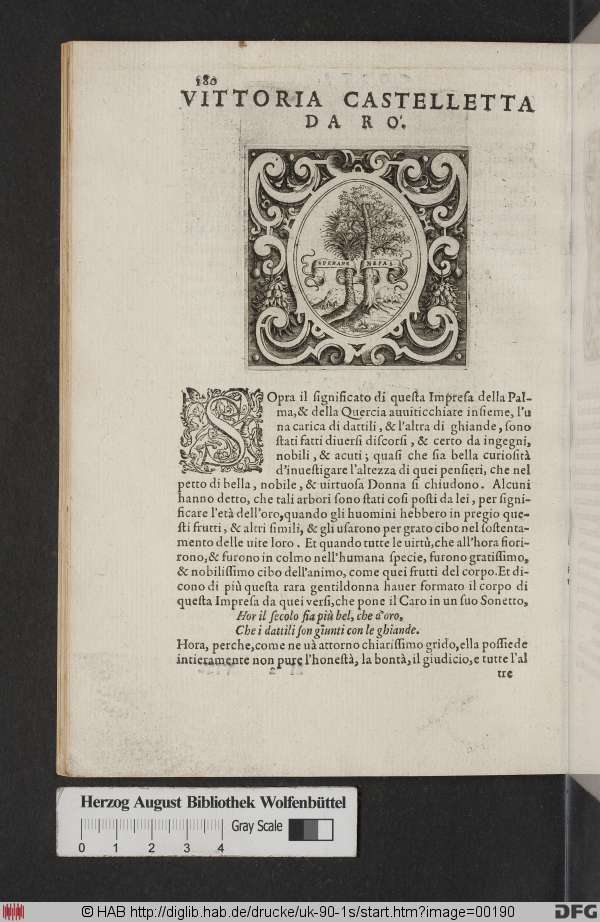 180
VITTORIA CASTELLETTA
DA RO'.
SPERARE NEFAS
SOpra il significato di questa Impresa della Pal-
ma,& della Quercia auuiticchiate insieme, l'u
na carica di dattili, & l'altra di ghiande, sono
stati fatti diuersi discorsi, & certo da ingegni,
nobili, & acuti; quasi che sia bella curiosità
d'inuestigare l'altezza di quei pensieri, che nel
petto di bella, nobile, & uirtuosa Donna si chiudono. Alcuni
hanno detto, che tali arbori sono stati cosi posti da lei, per signi-
ficare l'età dell'oro,quando gli huomini hebbero in pregio que-
sti frutti, & altri simili, & gli usarono per grato cibo nel sostenta-
mento delle uite loro. Et quando tutte le uirtù,che all'hora fiori-
rono,& furono in colmo nell'humana specie, furono gratissimo,
& nobilissimo cibo dell'animo, come quei frutti del corpo.Et di-
cono di più questa rara gentildonna hauer formato il corpo di
questa Impresa da quei versi,che pone il Caro in un suo Sonetto,
Hor il secolo sia più bel, che d'oro,
Che i dattili son giunti con le ghiande.
Hora, perche,come ne uà attorno chiarissimo grido,ella possiede
intieramente non pure l'honestà, la bontà,il giudicio,e tutte l'al
tre
Herzog August Bibliothek Wolfenbüttel
Gray Scale
0 1 2 3 4
© HAB http://diglib.hab.de/drucke/uk-90-1s/start.htm?image=00190
DFG